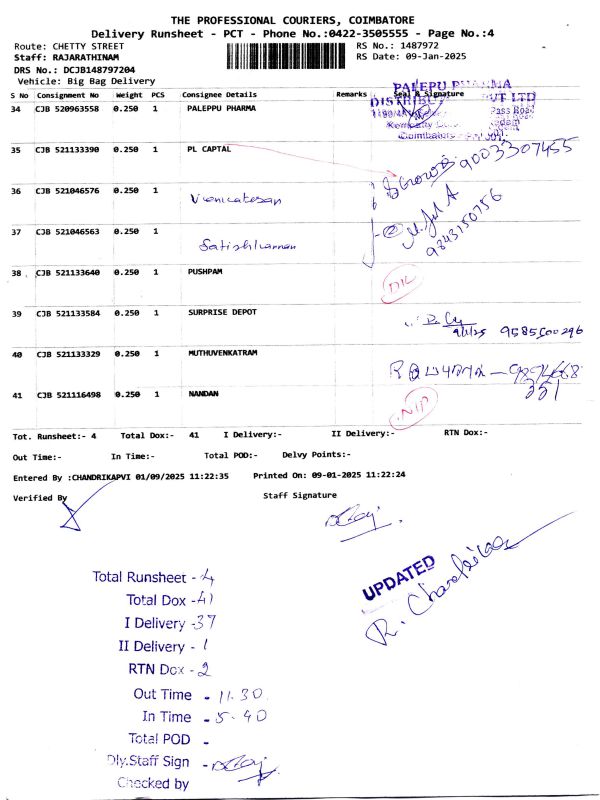 THE PROFESSIONAL COURIERS, COIMBATORE
Delivery Runsheet - PCT - Phone No.:0422-3505555 - Page No.:4
Route: CHETTY STREET RS No.: 1487972
Staff: RAJARATHINAM RS Date: 09-Jan-2025
DRS No.: DCJB148797204
Vehicle: Big Bag Delivery
S No Consignment No Weight PCS Consignee Details Remarks Seal & Signature
34 CJB 520963558 0.250 1 PALEPPU PHARMA
PALEPU PHARMA
PVT LTD
Pass Road
35 CJB 521133390 0.250 1 PL CAPTAL
9003307455
36 CJB 521046576 0.250 1
37 CJB 521046563 0.250 1 Satishkannan
9843150756
38 CJB 521133640 0.250 1 PUSHPAM
39 CJB 521133584 0.250 1 SURPRISE DEPOT
9/1/25 9585500296
40 CJB 521133329 0.250 1 MUTHUVENKATRAM
351
41 CJB 521116498 0.250 1 NANDAN
NIP
Tot. Runsheet:- 4 Total Dox:- 41 I Delivery:- II Delivery:- RTN Dox:-
Out Time:- In Time:- Total POD:- Delvy Points:-
Entered By :CHANDRIKAPVI 01/09/2025 11:22:35 Printed On: 09-01-2025 11:22:24
Verified By Staff Signature
UPDATED
Total Runsheet - 4
Total Dox - 41
I Delivery - 37
II Delivery - 1
RTN Dox - 2
Out Time - 11.30
In Time - 5-40
Total POD -
Dly.Staff Sign -
Checked by